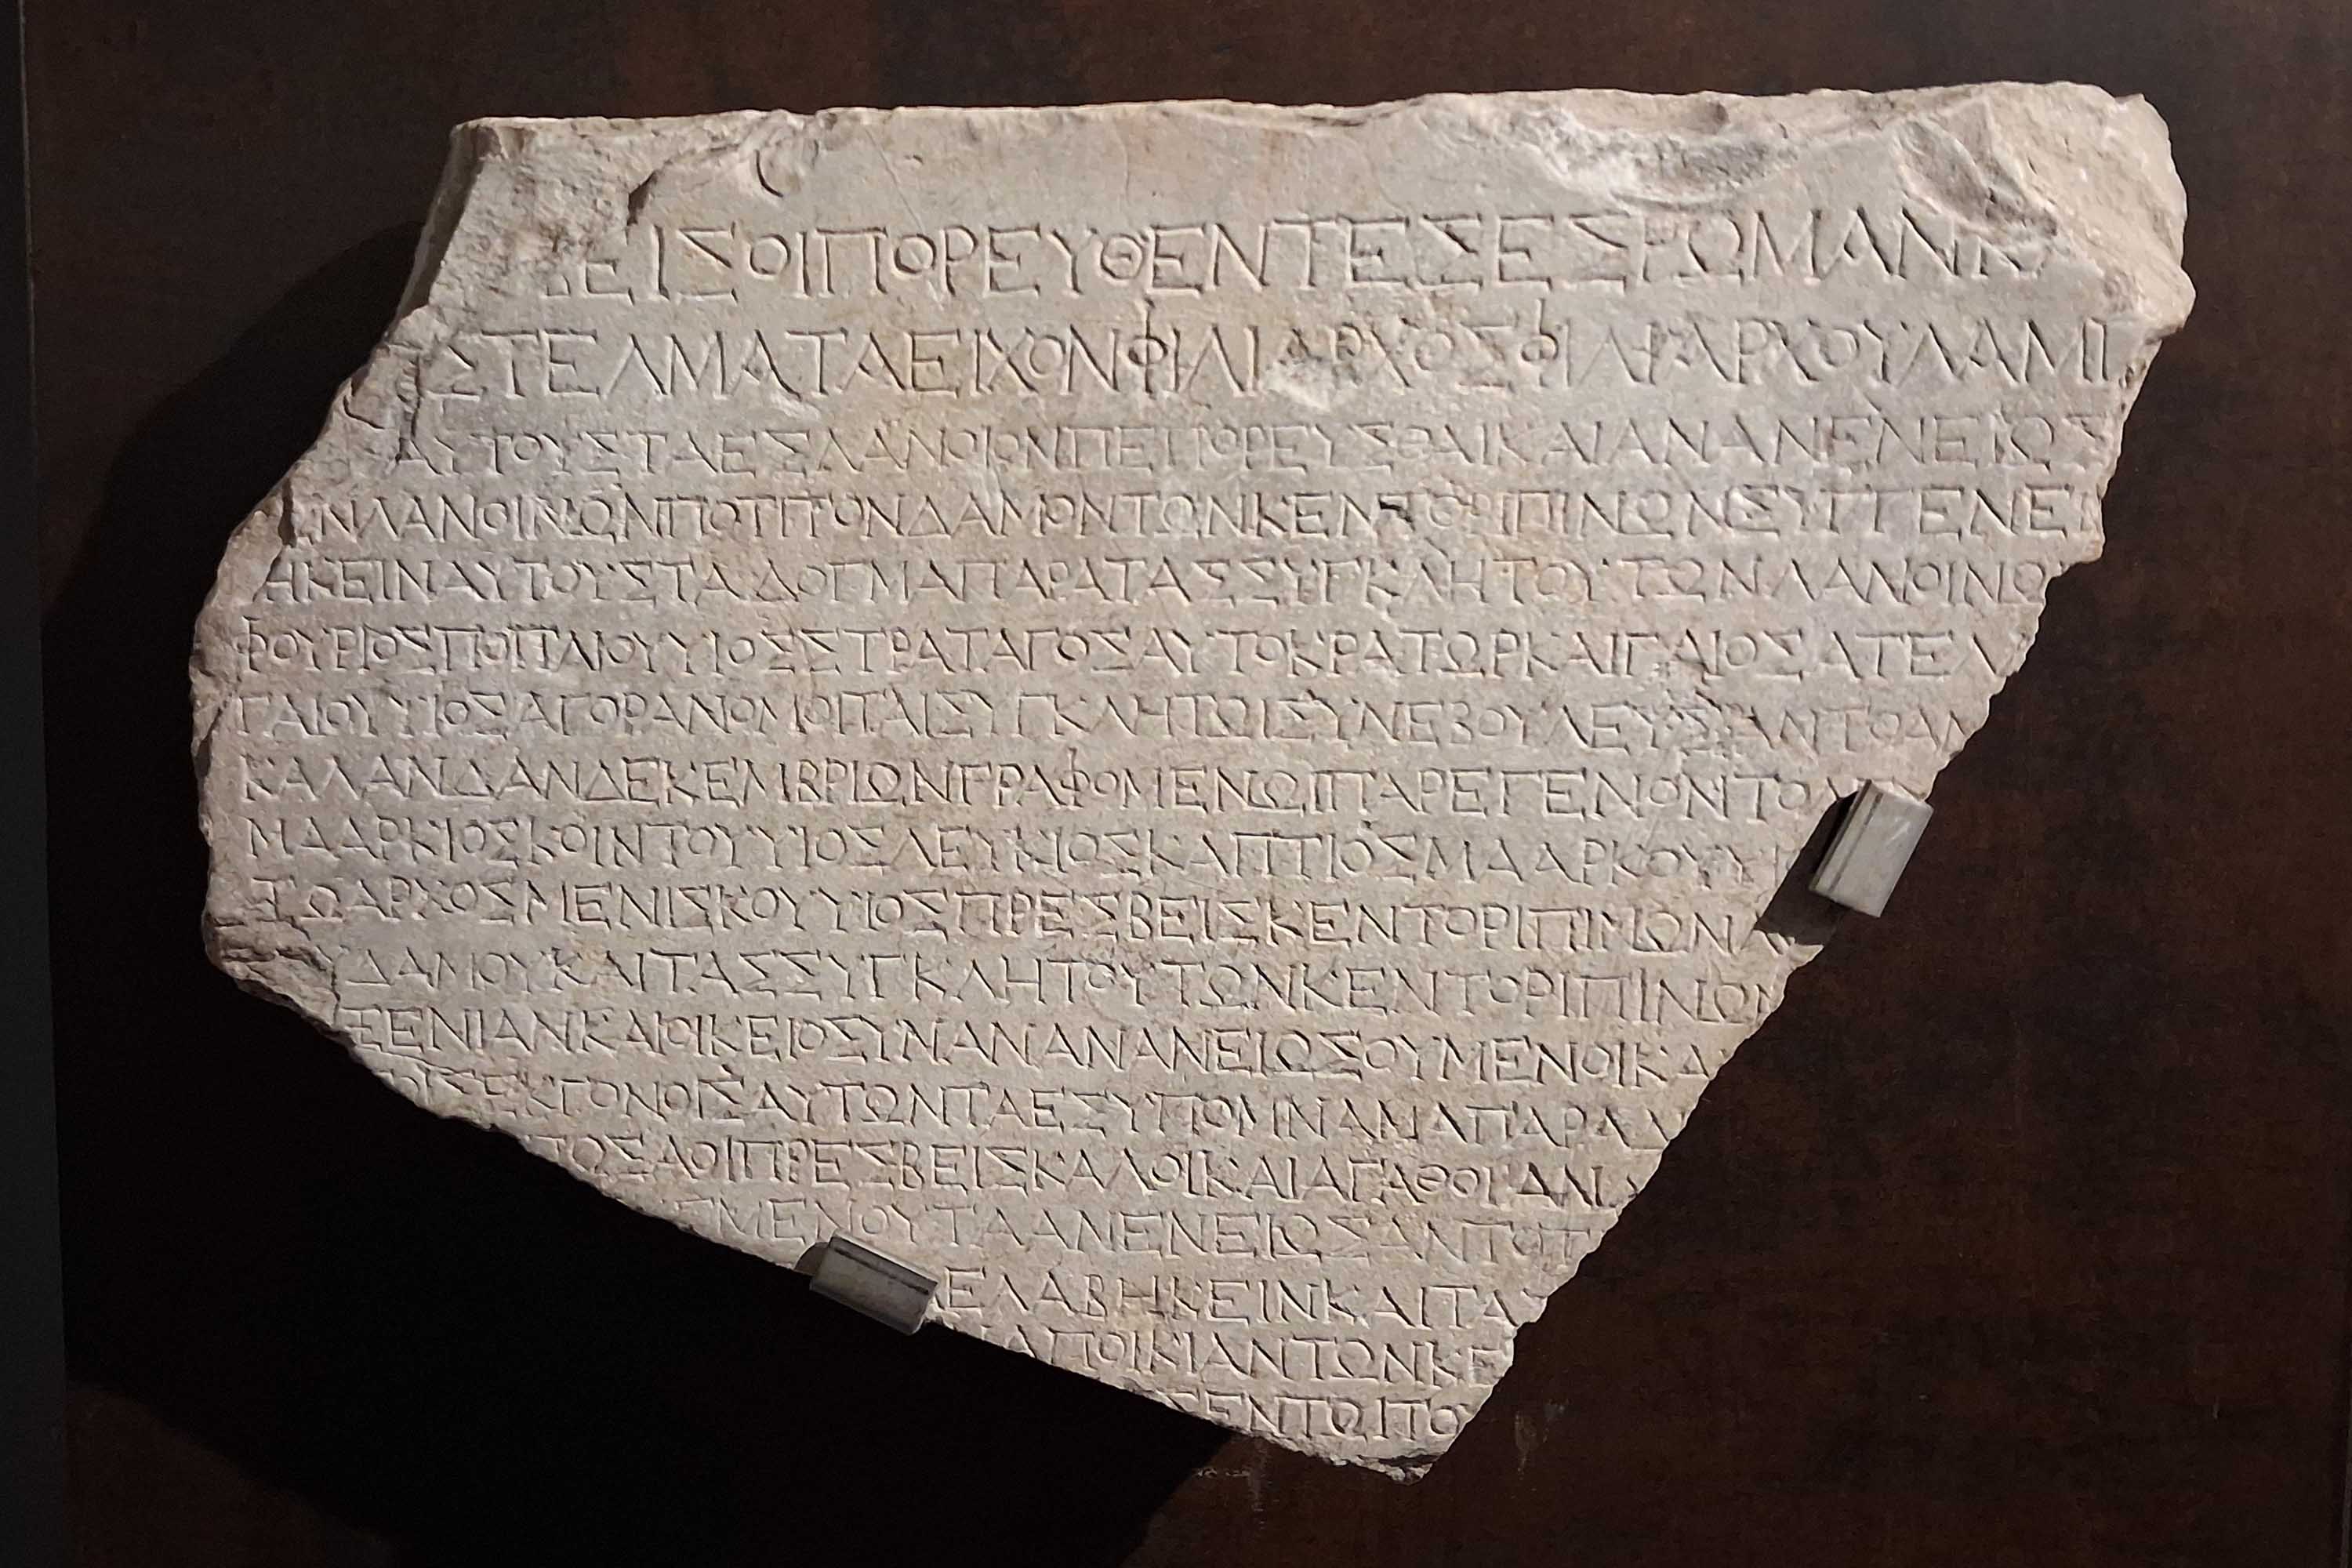 ΒΕΙΣΟΙΠΟΡΕΥΘΕΝΤΕΣΕΣΡΩΜΑΝΚ
ΣΤΕΛΜΑΤΑΕΙΧΟΝΦΙΛΙΑΡΧΟΣΦΙΛΙΑΡΧΟΥΛΑΜΠ
ΑΥΤΟΥΣΤΑΕΣΛΑΝΟΙΟΝΠΕΠΟΡΕΥΣΘΑΙΚΑΙΑΝΑΝΕΝΕΙΩΣ
ΕΝΛΑΝΟΙΝΩΝΠΟΤΙΤΟΝΔΑΜΟΝΤΩΝΚΕΝΤΟΡΙΠΙΝΩΝΣΥΓΓΕΝΕΙ
ΗΚΕΙΝΑΥΤΟΥΣΤΑΔΟΓΜΑΠΑΡΑΤΑΣΣΥΓΚΛΗΤΟΥΤΩΝΛΑΝΟΙΝΩ
ΦΟΥΡΙΟΣΠΟΠΛΙΟΥΥΙΟΣΣΤΡΑΤΑΓΟΣΑΥΤΟΚΡΑΤΩΡΚΑΙΓΑΙΟΣΑΤΕΛ
ΓΑΙΟΥΥΙΟΣΑΓΟΡΑΝΟΜΟΙΤΑΙΣΥΓΚΛΗΤΩΙΣΥΝΕΒΟΥΛΕΥΣΑΝΤΟΑΝ
ΚΑΛΑΝΔΑΝΔΕΚΕΜΒΡΙΩΝΓΡΑΦΟΜΕΝΩΙΠΑΡΕΓΕΝΟΝΤΟ
ΜΑΑΡΚΙΟΣΚΟΙΝΤΟΥΥΙΟΣΛΕΥΚΙΟΣΚΑΠΤΙΟΣΜΑΑΡΚΟΥΥΙ
ΖΩΑΡΧΟΣΜΕΝΙΣΚΟΥΥΙΟΣΠΡΕΣΒΕΙΣΚΕΝΤΟΡΙΠΙΝΩΝΑ
ΥΔΑΜΟΥΚΑΙΤΑΣΣΥΓΚΛΗΤΟΥΤΩΝΚΕΝΤΟΡΙΠΙΝΩΝ
ΞΕΝΙΑΝΚΑΙΟΙΚΕΙΟΣΥΝΑΝΑΝΑΝΕΙΩΣΟΥΜΕΝΟΙΚΑ
ΟΙΣΕΚΓΟΝΟΙΣΑΥΤΩΝΤΑΕΣΥΠΟΜΝΑΜΑΠΑΡΑΔ
ΠΟΣΑΟΙΠΡΕΣΒΕΙΣΚΑΛΟΙΚΑΙΑΓΑΘΟΙ
ΣΜΕΝΟΥΤΑΑΝΕΝΕΙΩΣΑΝΤΟΤ
ΕΛΑΒΗΚΕΙΝΚΑΙΤΑ
ΑΠΟΙΚΙΑΝΤΩΝΚΕ
ΣΕΝΤΩΙΤΟ